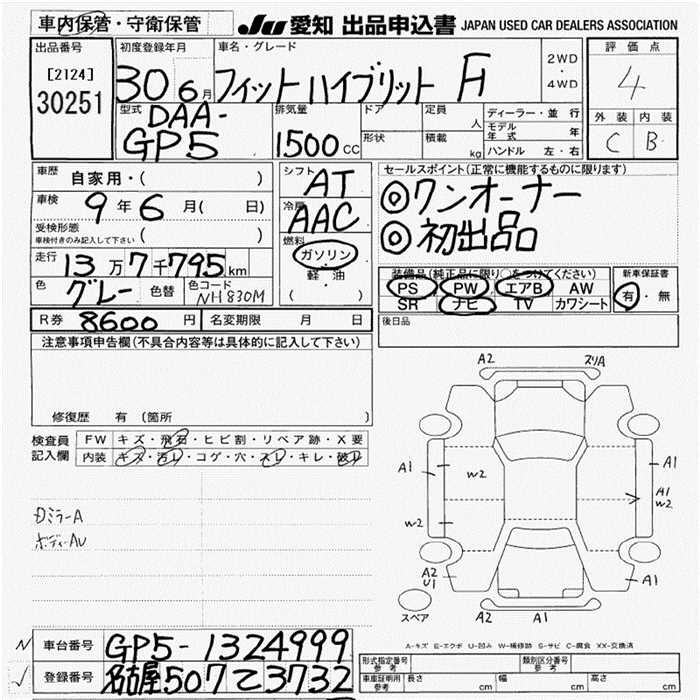 車内保管・守衛保管
JU 愛知 出品申込書 JAPAN USED CAR DEALERS ASSOCIATION
出品番号 初度登録年月 車名・グレード 評価点
[2124] 30年6月 フィットハイブリット F 2WD・4WD 4
30251
型式 DAA-GP5 排気量 1500cc ドア 定員 人 ディーラー・並行 外装 内装
形状 積載 kg モデル年式 年 C B
ハンドル 左・右
車歴 自家用・( )
シフト AT
セールスポイント(正常に機能するものに限ります)
車検 9年6月( 日)
冷房 AAC
◎ワンオーナー
受検形態 ( )
車検付きのみ記入して下さい
◎初出品
燃料 ガソリン・軽・油 ( )
走行 13万7千795km
装備品(純正品に限り○をつけてください) 新車保証書
色 グレー 色替 色コード NH830M
PS PW エアB AW 有・無
SR ナビ TV カワシート
R券 8600円 名変期限 月 日
後日品
注意事項申告欄(不具合内容等は具体的に記入して下さい)
修復歴 有 (箇所
検査員記入欄 FW キズ・飛石・ヒビ割・リペア跡・X要
内装 キズ・汚レ・コゲ・穴・スレ・キレ・破レ
A2
スリA
A1
W2
A1
A1
W2
W2
ロミラーA
ボディーAU
A2
U1
A1
スペア
A2 A1
A-キズ E-エクボ U-凹み W-補修跡 S-サビ C-腐食 XX-交換済
車台番号 GP5-1324999
登録番号 名古屋507て3732
形式指定番号 参考 類別区分番号 参考
車庫証明用 参考 長さ cm 幅 cm 高さ cm